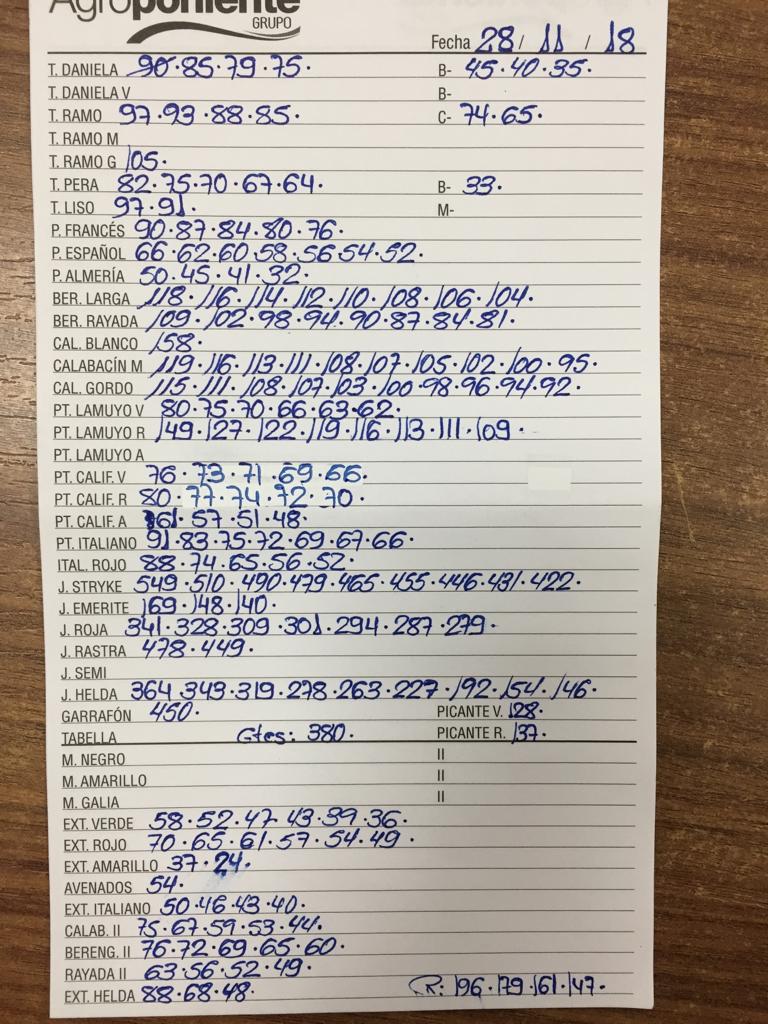 Agroponiente
GRUPO
Fecha 28/ 11 / 18
T. DANIELA 90·85·79·75· B- 45·40·35·
T. DANIELA V B-
T. RAMO 97·93·88·85· C- 74·65·
T. RAMO M
T. RAMO G 105·
T. PERA 82·75·70·67·64· B- 33·
T. LISO 97·91· M-
P. FRANCÉS 90·87·84·80·76·
P. ESPAÑOL 66·62·60·58·56·54·52·
P. ALMERÍA 50·45·41·32·
BER. LARGA 118·116·114·112·110·108·106·104·
BER. RAYADA 109·102·98·94·90·87·84·81·
CAL. BLANCO 158·
CALABACÍN M 119·116·113·111·108·107·105·102·100·95·
CAL. GORDO 115·111·108·107·103·100·98·96·94·92·
PT. LAMUYO V 80·75·70·66·63·62·
PT. LAMUYO R 149·127·122·119·116·113·111·109·
PT. LAMUYO A
PT. CALIF. V 76·73·71·69·66·
PT. CALIF. R 80·77·74·72·70·
PT. CALIF. A 61·57·51·48·
PT. ITALIANO 91·83·75·72·69·67·66·
ITAL. ROJO 88·74·65·56·52·
J. STRYKE 549·510·490·479·465·455·446·431·422·
J. EMERITE 169·148·140·
J. ROJA 341·328·309·301·294·287·279·
J. RASTRA 478·449·
J. SEMI
J. HELDA 364 343·319·278·263·227·192·154·146·
GARRAFÓN 450· PICANTE V. 128·
TABELLA Gtes: 380· PICANTE R. 137·
M. NEGRO II
M. AMARILLO II
M. GALIA II
EXT. VERDE 58·52·47·43·39·36·
EXT. ROJO 70·65·61·57·54·49·
EXT. AMARILLO 37·24·
AVENADOS 54·
EXT. ITALIANO 50·46·43·40·
CALAB. II 75·67·59·53·44·
BERENG. II 76·72·69·65·60·
RAYADA II 63·56·52·49·
EXT. HELDA 88·68·48· R: 196·179·161·147·